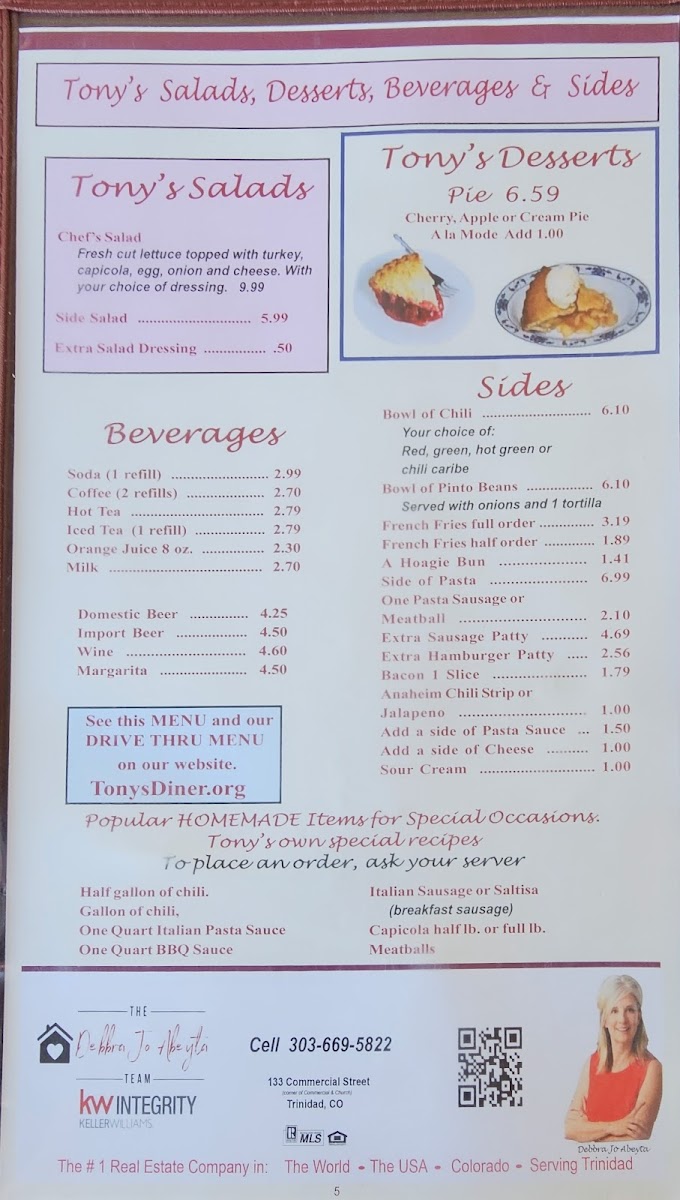 Tony's Salads, Desserts, Beverages & Sides
Tony's Salads
Chef's Salad
Fresh cut lettuce topped with turkey,
capicola, egg, onion and cheese. With
your choice of dressing. 9.99
Side Salad ............................ 5.99
Extra Salad Dressing ............... .50
Tony's Desserts
Pie 6.59
Cherry, Apple or Cream Pie
A la Mode Add 1.00
Beverages
Soda (1 refill) ........................ 2.99
Coffee (2 refills) ................... 2.70
Hot Tea ................................ 2.79
Iced Tea (1 refill) ................... 2.79
Orange Juice 8 oz. ............... 2.30
Milk ..................................... 2.70
Domestic Beer ............... 4.25
Import Beer .................. 4.50
Wine .............................. 4.60
Margarita ...................... 4.50
See this MENU and our
DRIVE THRU MENU
on our website.
TonysDiner.org
Sides
Bowl of Chili ........................... 6.10
Your choice of:
Red, green, hot green or
chili caribe
Bowl of Pinto Beans ................ 6.10
Served with onions and 1 tortilla
French Fries full order ............. 3.19
French Fries half order ............ 1.89
A Hoagie Bun ...................... 1.41
Side of Pasta ........................ 6.99
One Pasta Sausage or
Meatball ............................... 2.10
Extra Sausage Patty .......... 4.69
Extra Hamburger Patty ..... 2.56
Bacon 1 Slice ....................... 1.79
Anaheim Chili Strip or
Jalapeno ............................... 1.00
Add a side of Pasta Sauce ... 1.50
Add a side of Cheese .......... 1.00
Sour Cream ............................ 1.00
Popular HOMEMADE Items for Special Occasions.
Tony's own special recipes
To place an order, ask your server
Half gallon of chili.
Gallon of chili,
One Quart Italian Pasta Sauce
One Quart BBQ Sauce
Italian Sausage or Saltisa
(breakfast sausage)
Capicola half lb. or full lb.
Meatballs
THE
Debbra Jo Abeyta
TEAM
kw INTEGRITY
KELLERWILLIAMS.
Cell 303-669-5822
133 Commercial Street
(corner of Commercial & Church)
Trinidad, CO
R MLS
Debbra Jo Abeyta
The # 1 Real Estate Company in: The World - The USA - Colorado - Serving Trinidad
5